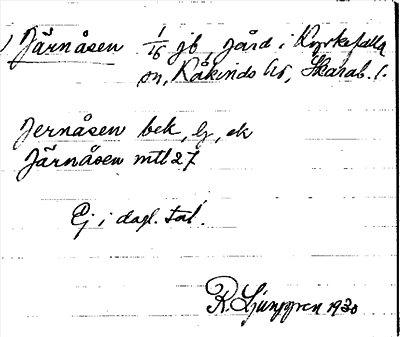 Järnåsen 1/16 jb, jård i Kyrkefalla
sn, Kåkinds hd, Skarab. l.
Jernåsen bek, lj, ek
Järnåsen mtl 27
Ej i dagl. tal.
R. Ljunggren 1930